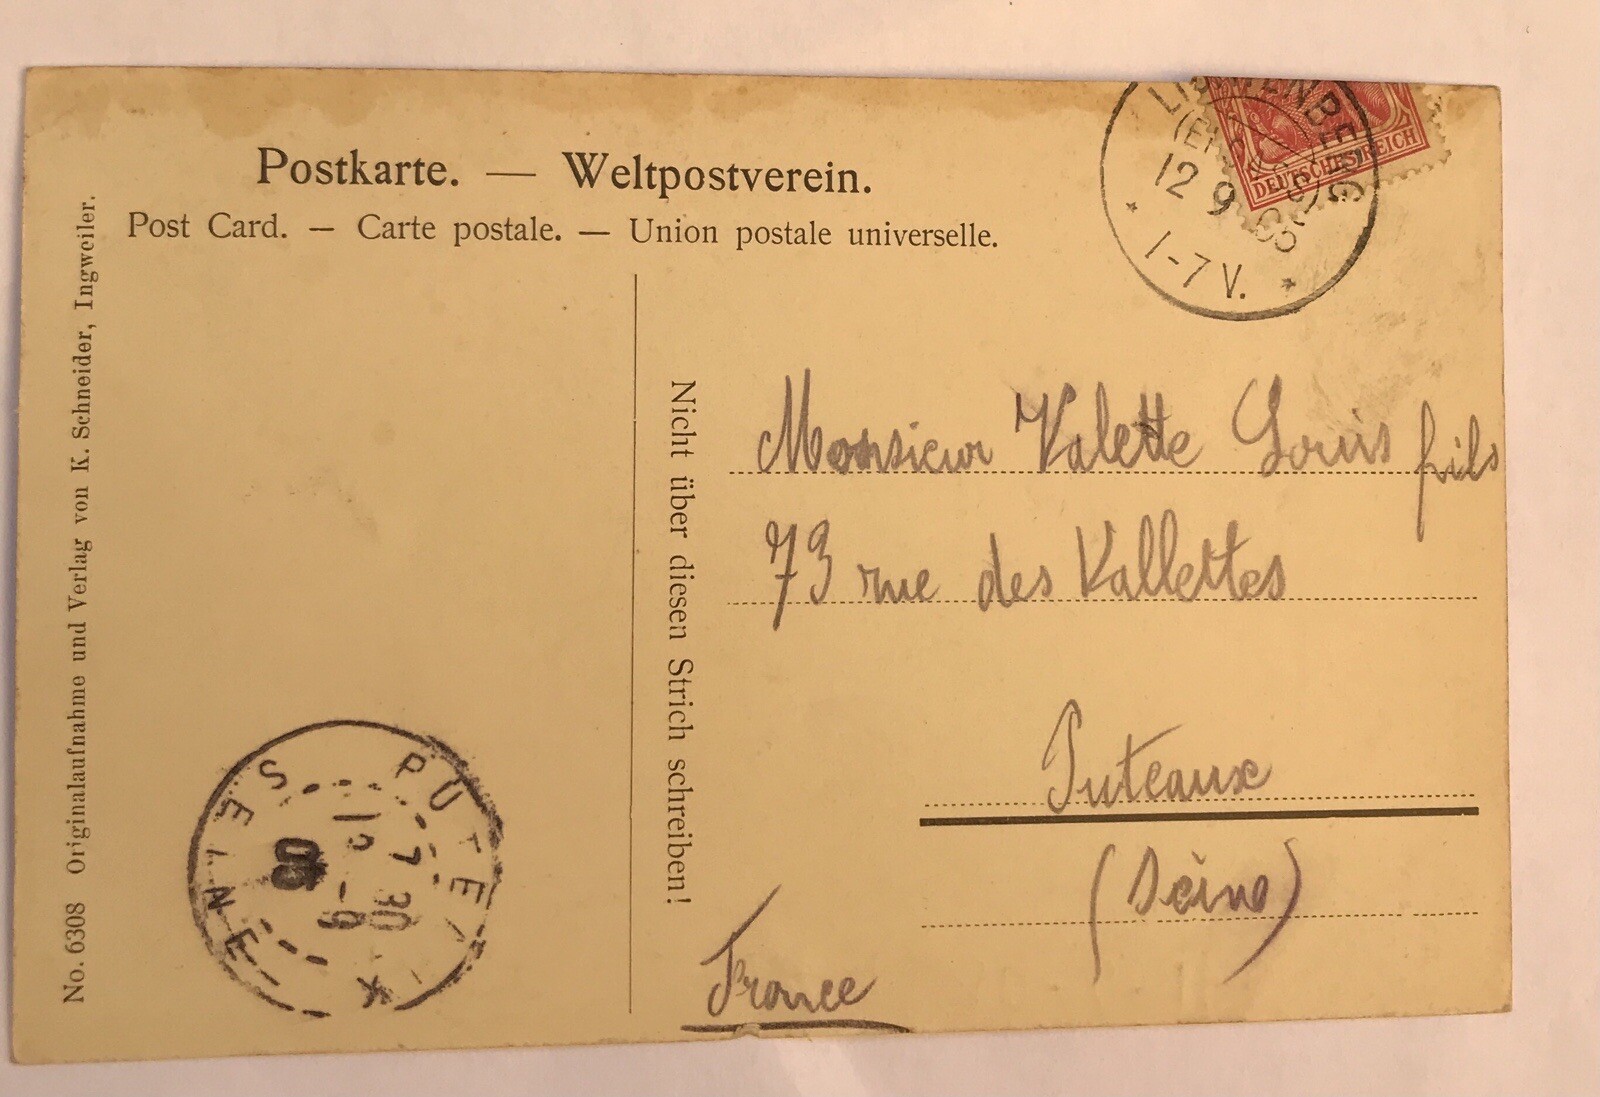 Postkarte. — Weltpostverein.
Post Card. — Carte postale. — Union postale universelle.
DEUTSCHES REICH
12 9
1-7 V.
No. 6308 Originalaufnahme und Verlag von K. Schneider, Ingweiler.
Nicht über diesen Strich schreiben!
Monsieur Valette Louis fils
73 rue des Vallettes
Puteaux
(Seine)
France
PUTEAUX
SEINE
7 30
05